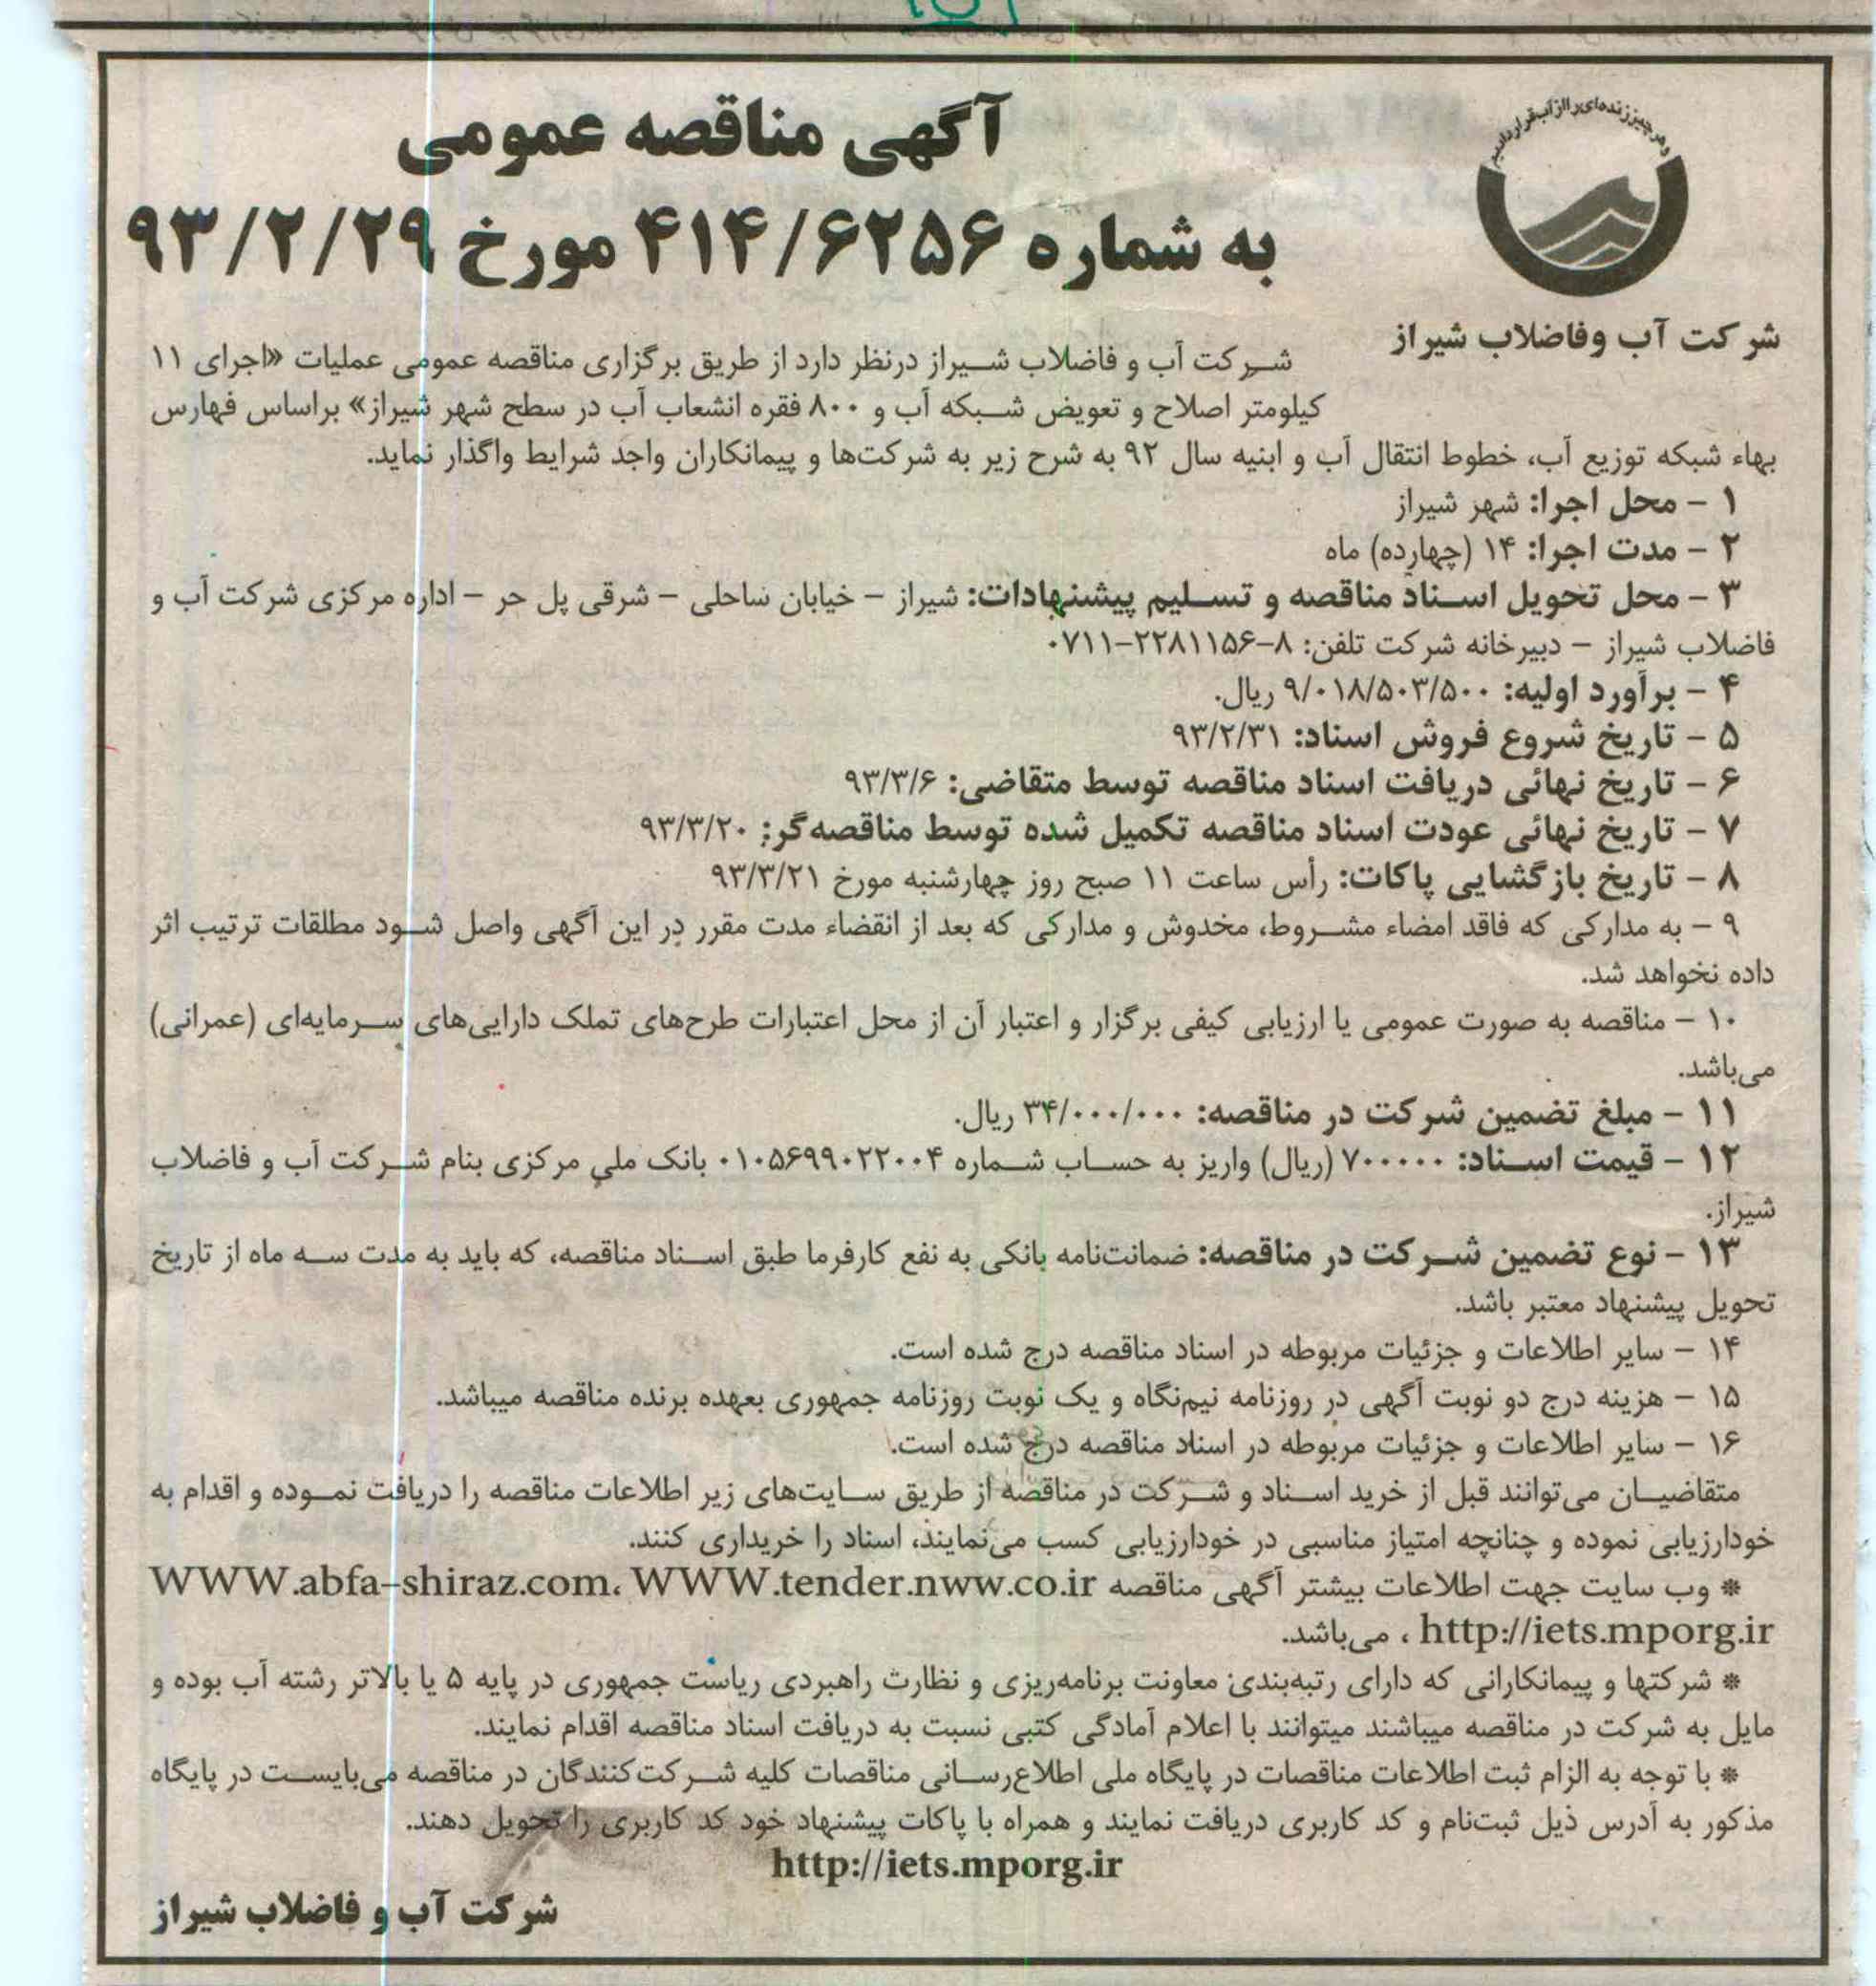 و هر چیز زنده‌ای را از آب قرار دادیم
آگهی مناقصه عمومی
به شماره ۴۱۴/۶۲۵۶ مورخ ۹۳/۲/۲۹
شرکت آب وفاضلاب شیراز
شرکت آب و فاضلاب شیراز درنظر دارد از طریق برگزاری مناقصه عمومی عملیات «اجرای ۱۱
کیلومتر اصلاح و تعویض شبکه آب و ۸۰۰ فقره انشعاب آب در سطح شهر شیراز» براساس فهارس
بهاء شبکه توزیع آب، خطوط انتقال آب و ابنیه سال ۹۲ به شرح زیر به شرکت‌ها و پیمانکاران واجد شرایط واگذار نماید.
۱ – محل اجرا: شهر شیراز
۲ – مدت اجرا: ۱۴ (چهارده) ماه
۳ – محل تحویل اسناد مناقصه و تسلیم پیشنهادات: شیراز – خیابان ساحلی – شرقی پل حر – اداره مرکزی شرکت آب و
فاضلاب شیراز – دبیرخانه شرکت تلفن: ۸–۲۲۸۱۱۵۶–۰۷۱۱
۴ – برآورد اولیه: ۹/۰۱۸/۵۰۳/۵۰۰ ریال.
۵ – تاریخ شروع فروش اسناد: ۹۳/۲/۳۱
۶ – تاریخ نهائی دریافت اسناد مناقصه توسط متقاضی: ۹۳/۳/۶
۷ – تاریخ نهائی عودت اسناد مناقصه تکمیل شده توسط مناقصه‌گر: ۹۳/۳/۲۰
۸ – تاریخ بازگشایی پاکات: رأس ساعت ۱۱ صبح روز چهارشنبه مورخ ۹۳/۳/۲۱
۹ – به مدارکی که فاقد امضاء مشروط، مخدوش و مدارکی که بعد از انقضاء مدت مقرر در این آگهی واصل شود مطلقات ترتیب اثر
داده نخواهد شد.
۱۰ – مناقصه به صورت عمومی یا ارزیابی کیفی برگزار و اعتبار آن از محل اعتبارات طرح‌های تملک دارایی‌های سرمایه‌ای (عمرانی)
می‌باشد.
۱۱ – مبلغ تضمین شرکت در مناقصه: ۳۴/۰۰۰/۰۰۰ ریال.
۱۲ – قیمت اسناد: ۷۰۰۰۰۰ (ریال) واریز به حساب شماره ۰۱۰۵۶۹۹۰۲۲۰۰۴ بانک ملی مرکزی بنام شرکت آب و فاضلاب
شیراز.
۱۳ – نوع تضمین شرکت در مناقصه: ضمانت‌نامه بانکی به نفع کارفرما طبق اسناد مناقصه، که باید به مدت سه ماه از تاریخ
تحویل پیشنهاد معتبر باشد.
۱۴ – سایر اطلاعات و جزئیات مربوطه در اسناد مناقصه درج شده است.
۱۵ – هزینه درج دو نوبت آگهی در روزنامه نیم‌نگاه و یک نوبت روزنامه جمهوری بعهده برنده مناقصه میباشد.
۱۶ – سایر اطلاعات و جزئیات مربوطه در اسناد مناقصه درج شده است.
متقاضیان می‌توانند قبل از خرید اسناد و شرکت در مناقصه از طریق سایت‌های زیر اطلاعات مناقصه را دریافت نموده و اقدام به
خودارزیابی نموده و چنانچه امتیاز مناسبی در خودارزیابی کسب می‌نمایند، اسناد را خریداری کنند.
* وب سایت جهت اطلاعات بیشتر آگهی مناقصه WWW.abfa–shiraz.com، WWW.tender.nww.co.ir
http://iets.mporg.ir ، می‌باشد.
* شرکتها و پیمانکارانی که دارای رتبه‌بندی معاونت برنامه‌ریزی و نظارت راهبردی ریاست جمهوری در پایه ۵ یا بالاتر رشته آب بوده و
مایل به شرکت در مناقصه میباشند میتوانند با اعلام آمادگی کتبی نسبت به دریافت اسناد مناقصه اقدام نمایند.
* با توجه به الزام ثبت اطلاعات مناقصات در پایگاه ملی اطلاع‌رسانی مناقصات کلیه شرکت‌کنندگان در مناقصه می‌بایست در پایگاه
مذکور به آدرس ذیل ثبت‌نام و کد کاربری دریافت نمایند و همراه با پاکات پیشنهاد خود کد کاربری را تحویل دهند.
http://iets.mporg.ir
شرکت آب و فاضلاب شیراز